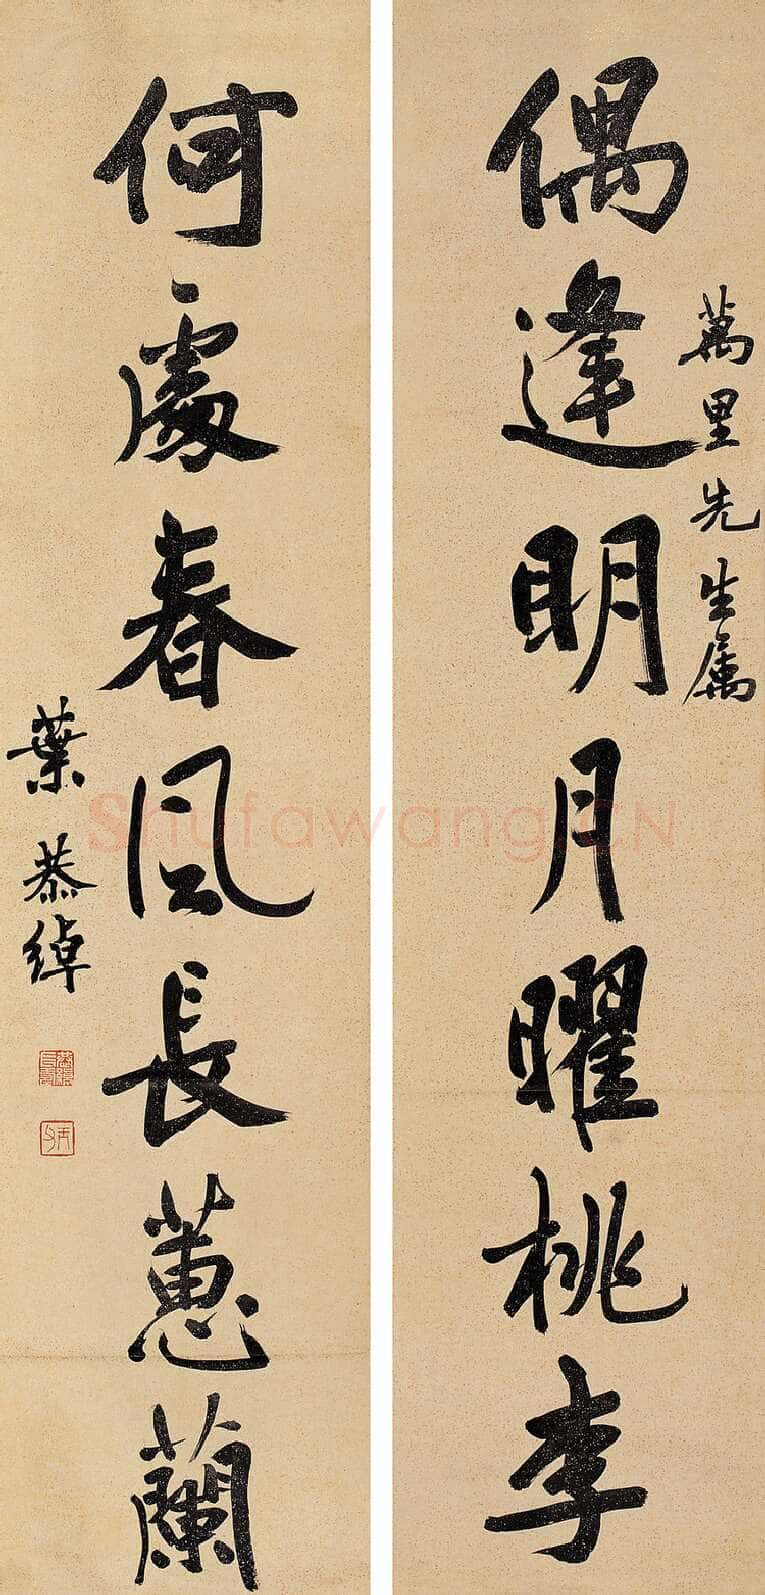 萬里先生属
偶逢明月曜桃李
何處春風長蕙蘭
葉恭綽
Shufawang.CN